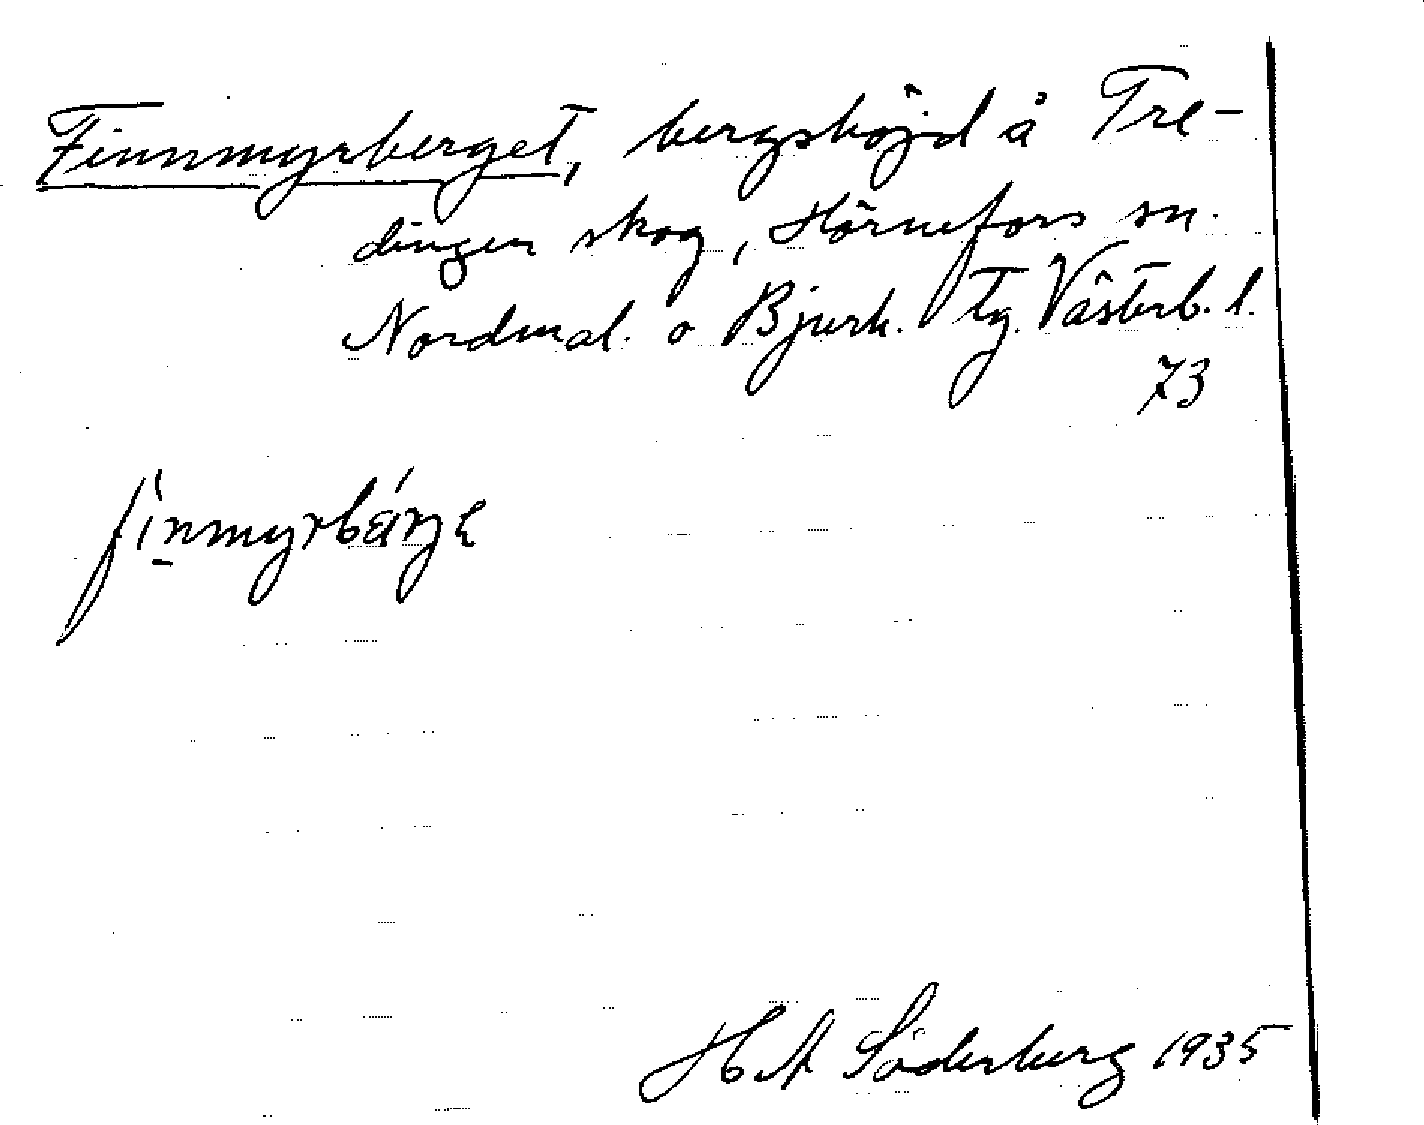 Finnmyrberget, bergshöjd å Tre-
dingen skog, Hörnefors sn.
Nordmal. o Bjurh. tg. Västerb. l.
73
finmyrbärje
H A Söderberg 1935